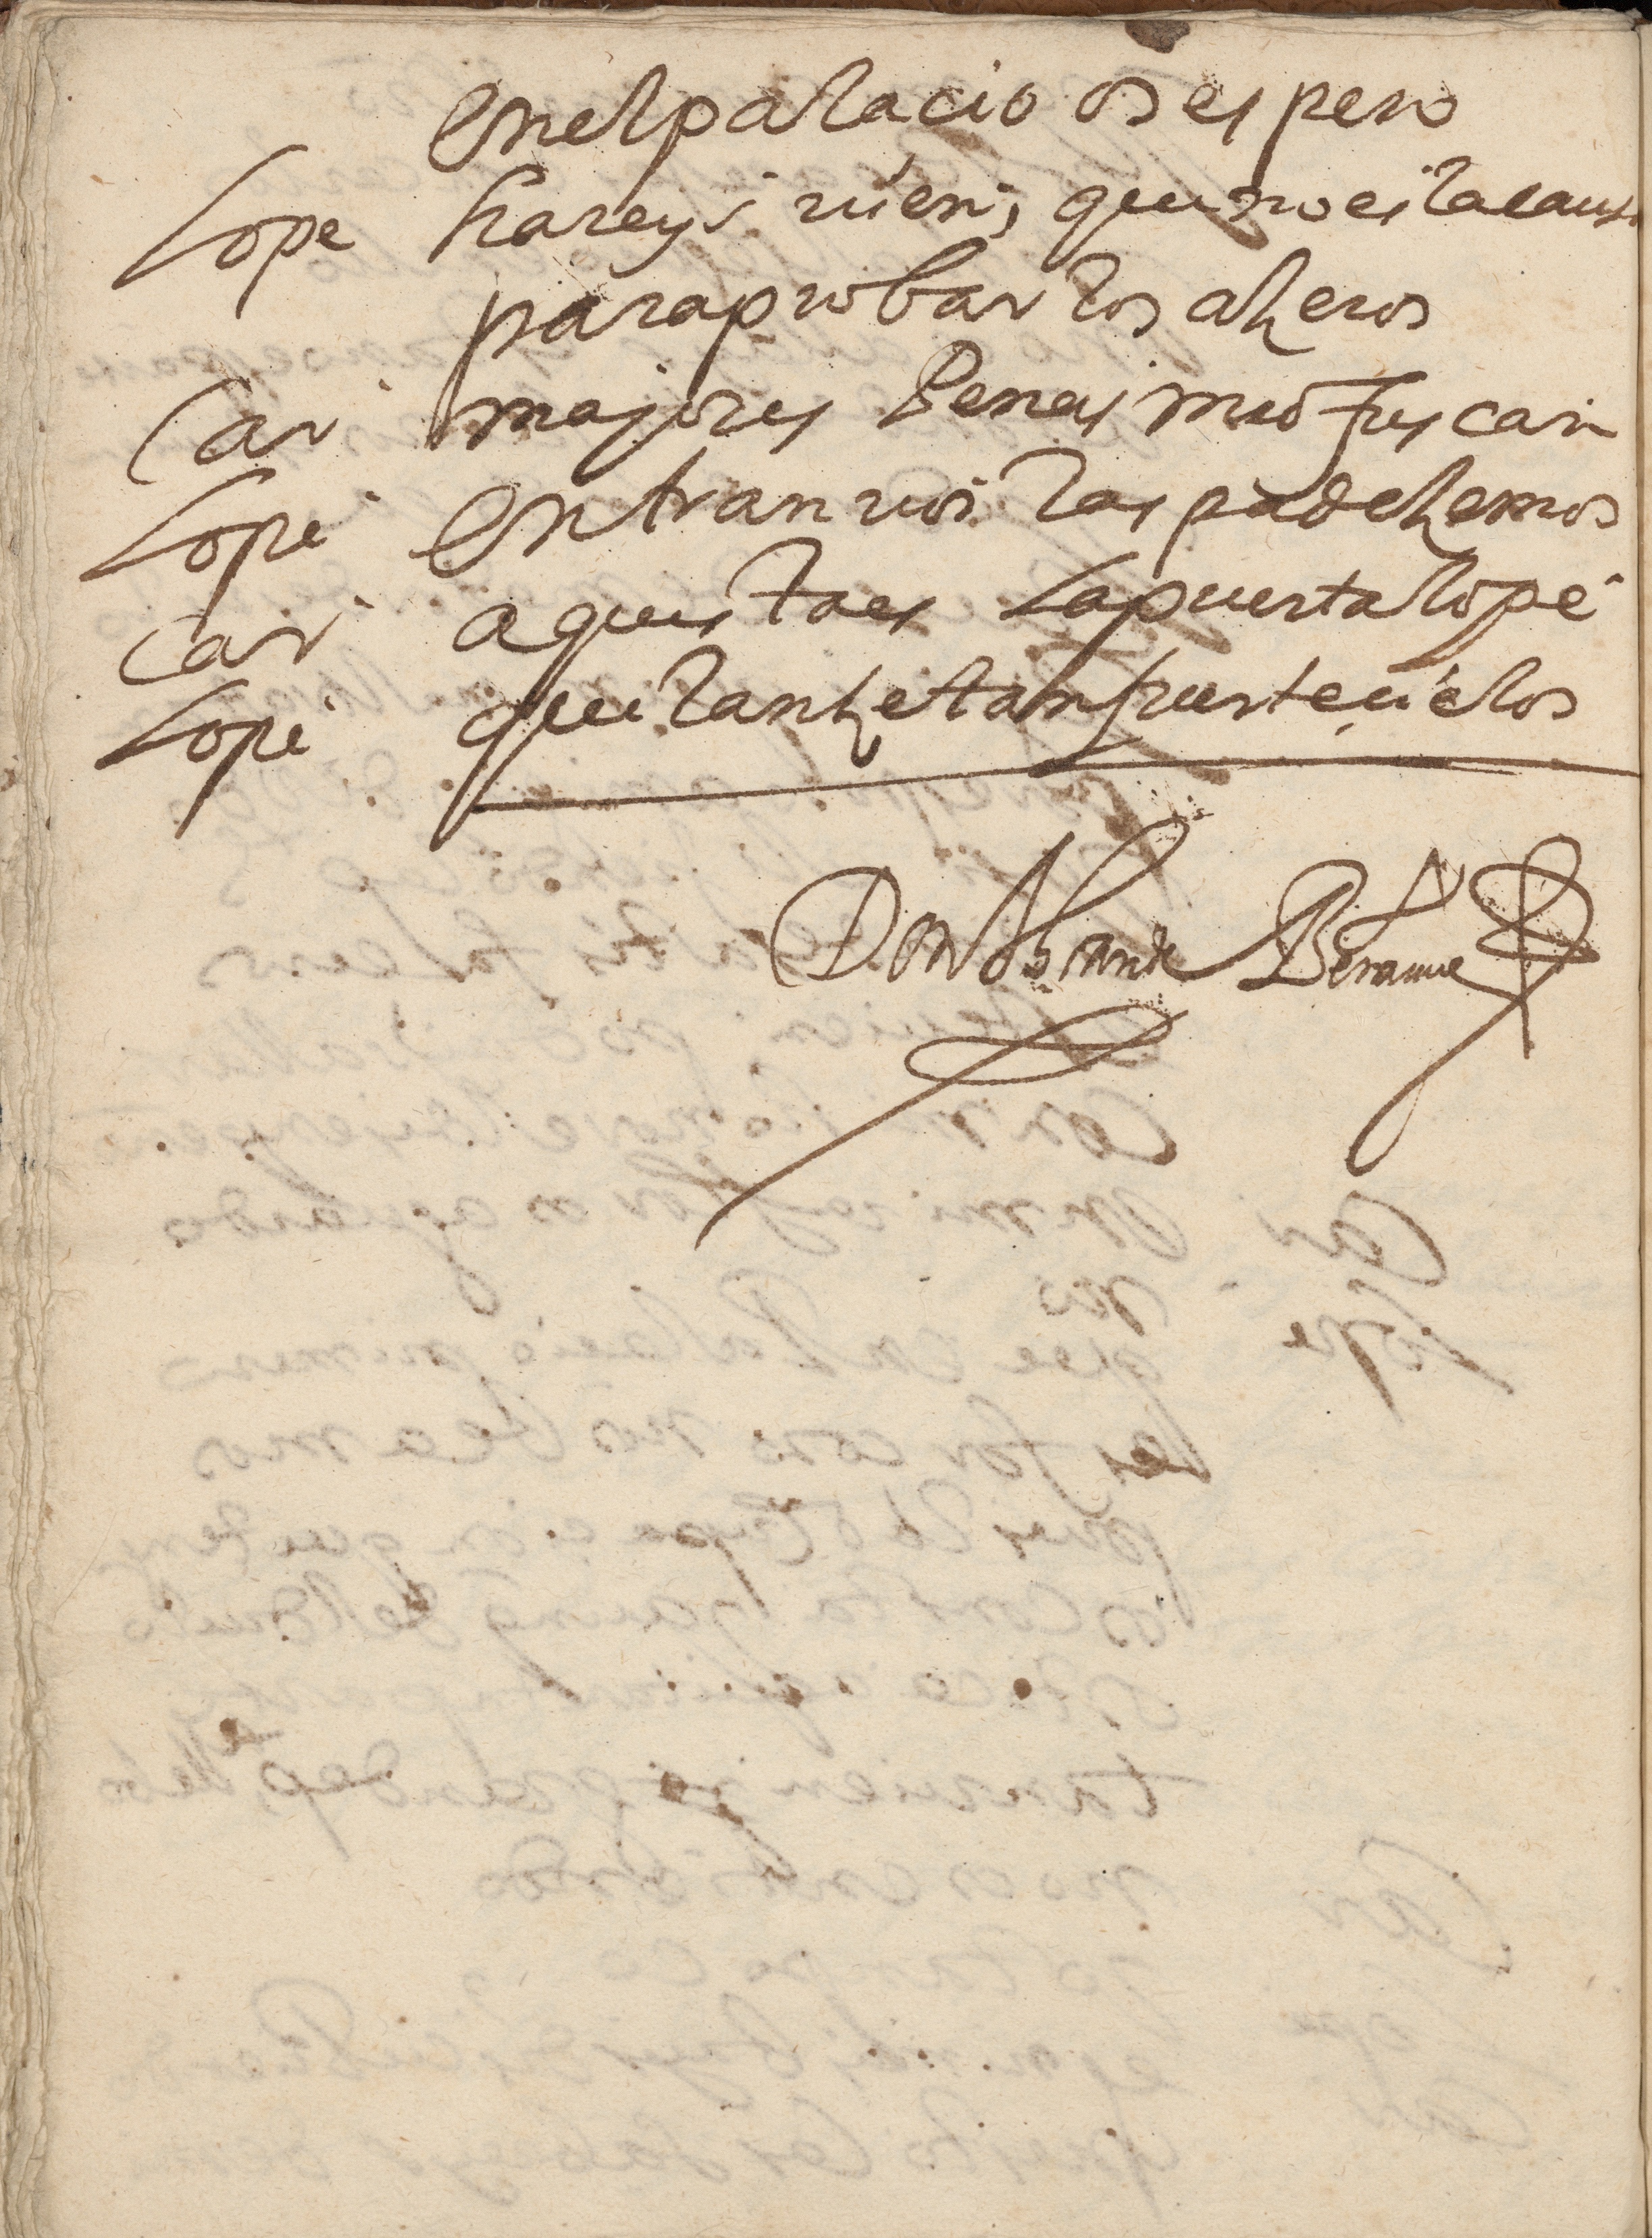 en el palacio os espero
Lope hareys vien, que no es la causa
para probar los açeros
Car mayores Penas me ofuscan
Lope entranvos las padeçemos
Car aquesta es la puerta lope
Lope que lançe tan fuerte çielos
Don